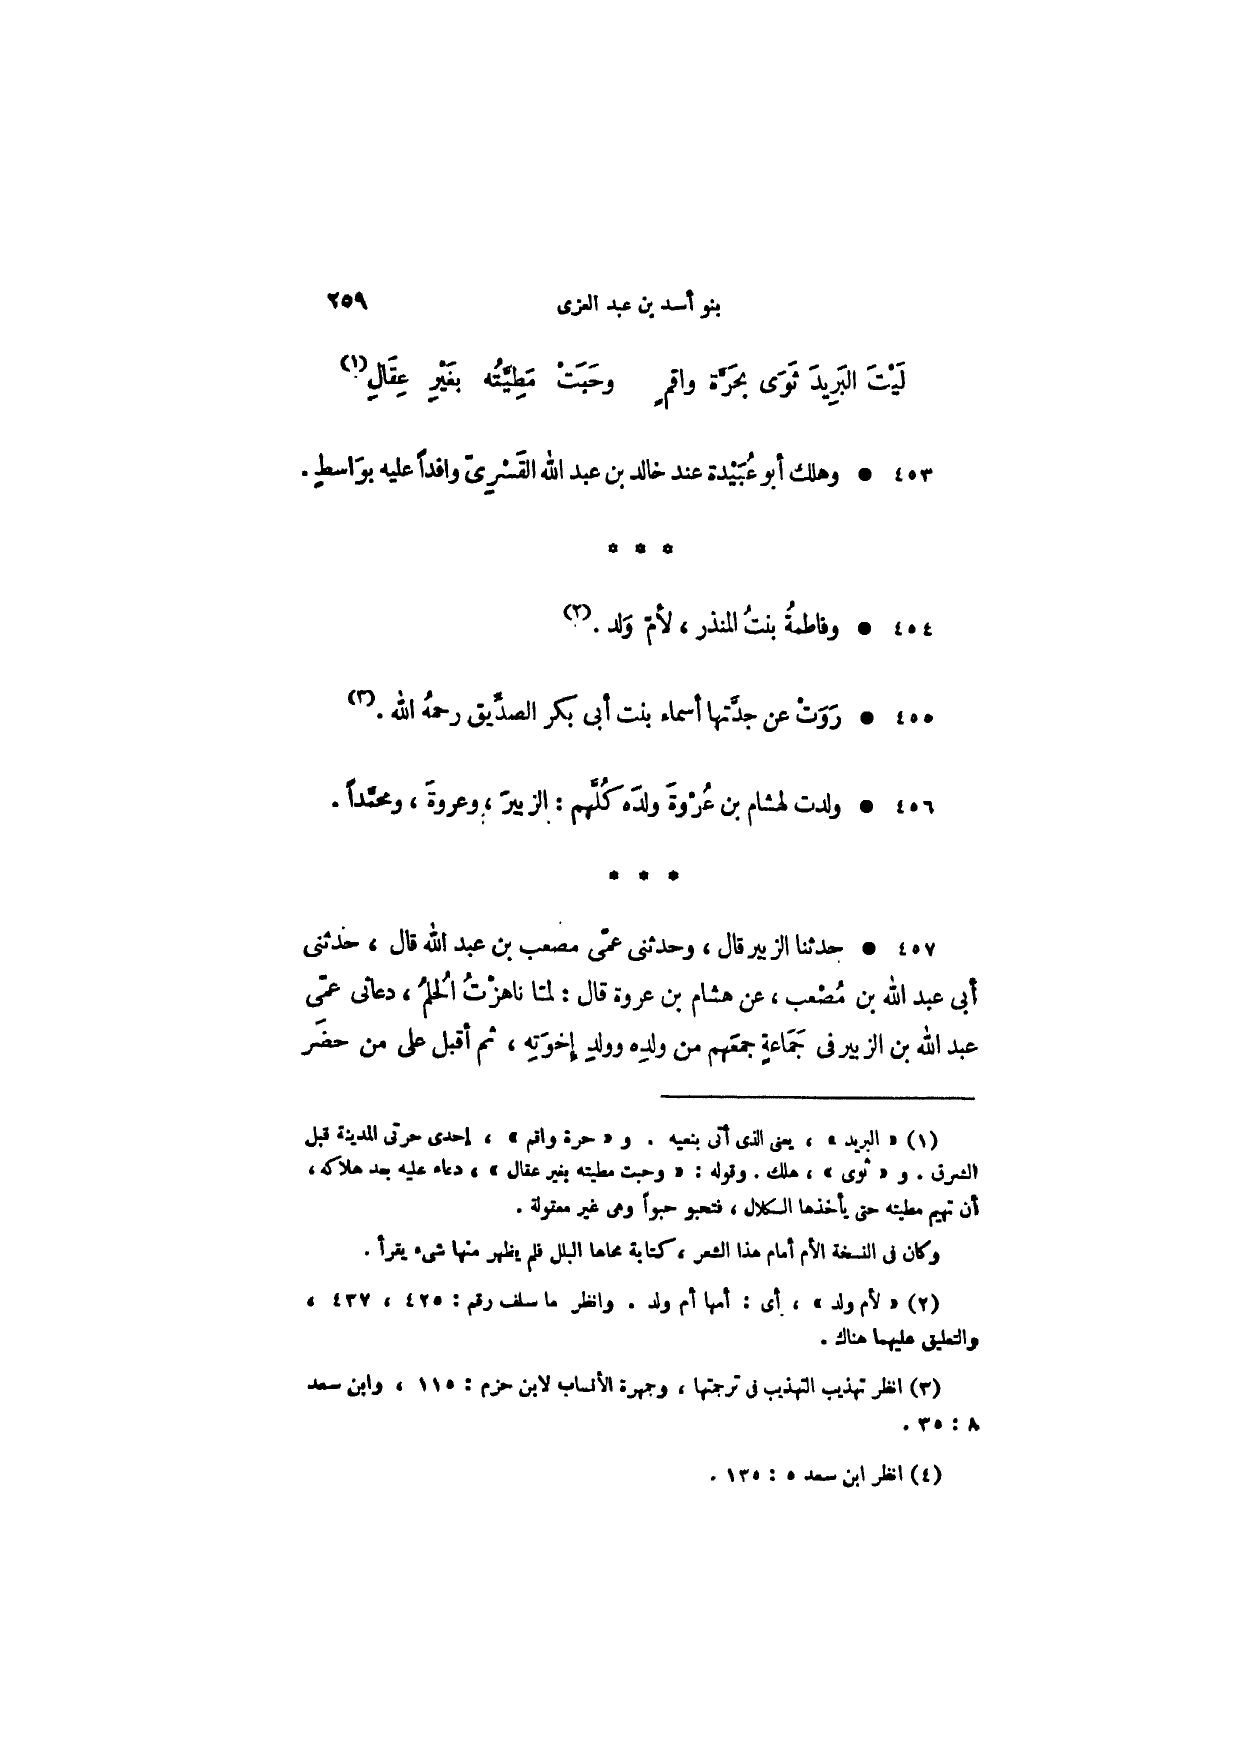 بنو أسد بن عبد العزى ٢٥٩
لَيْتَ البَرِيدَ ثَوَى بحَرَّة واقمٍ وحَبَتْ مَطِيَّتُه بغَيْرِ عِقَالِ(١)
٤٥٣ ● وهلك أبو عُبَيْدة عند خالد بن عبد الله القَسْرِىّ وافداً عليه بوَاسطٍ .
* * *
٤٥٤ ● وفاطمةُ بنتُ المنذر ، لأمّ وَلد .(٢)
٤٥٥ ● رَوَتْ عن جدَّتها أسماء بنت أبى بكر الصدِّيق رحمهُ الله .(٣)
٤٥٦ ● ولدت لهشام بن عُرْوةَ ولدَه كُلَّهم : الزبيرَ ، وعروةَ ، ومحمَّداً .
* * *
٤٥٧ ● حدثنا الزبير قال ، وحدثنى عمّى مصعب بن عبد الله قال ، حدثنى
أبى عبد الله بن مُصْعب ، عن هشام بن عروة قال : لمّا ناهزْتُ الحُلمُ ، دعانى عمّى
عبد الله بن الزبير فى جَمَاعةٍ جمعَهم من ولدِه وولدِ إخوَتِه ، ثم أقبل على من حضَر
(١) « البريد » ، يعنى الذى أتى بنعيه . و « حرة واقم » ، إحدى حرتى المدينة قبل
الشرق . و « ثوى » ، هلك . وقوله : « وحبت مطيته بغير عقال » ، دعاء عليه بعد هلاكه ،
أن تهيم مطيته حتى يأخذها الكلال ، فتحبو حبواً وهى غير معقولة .
وكان فى النسخة الأم أمام هذا الشعر ، كتابة محاها البلل فلم يظهر منها شىء يقرأ .
(٢) « لأم ولد » ، أى : أمها أم ولد . وانظر ما سلف رقم : ٤٢٥ ، ٤٣٧ ،
والتعليق عليهما هناك .
(٣) انظر تهذيب التهذيب فى ترجمتها ، وجمهرة الأنساب لابن حزم : ١١٥ ، وابن سعد
٨ : ٣٥٠ .
(٤) انظر ابن سعد ٥ : ١٣٥ .